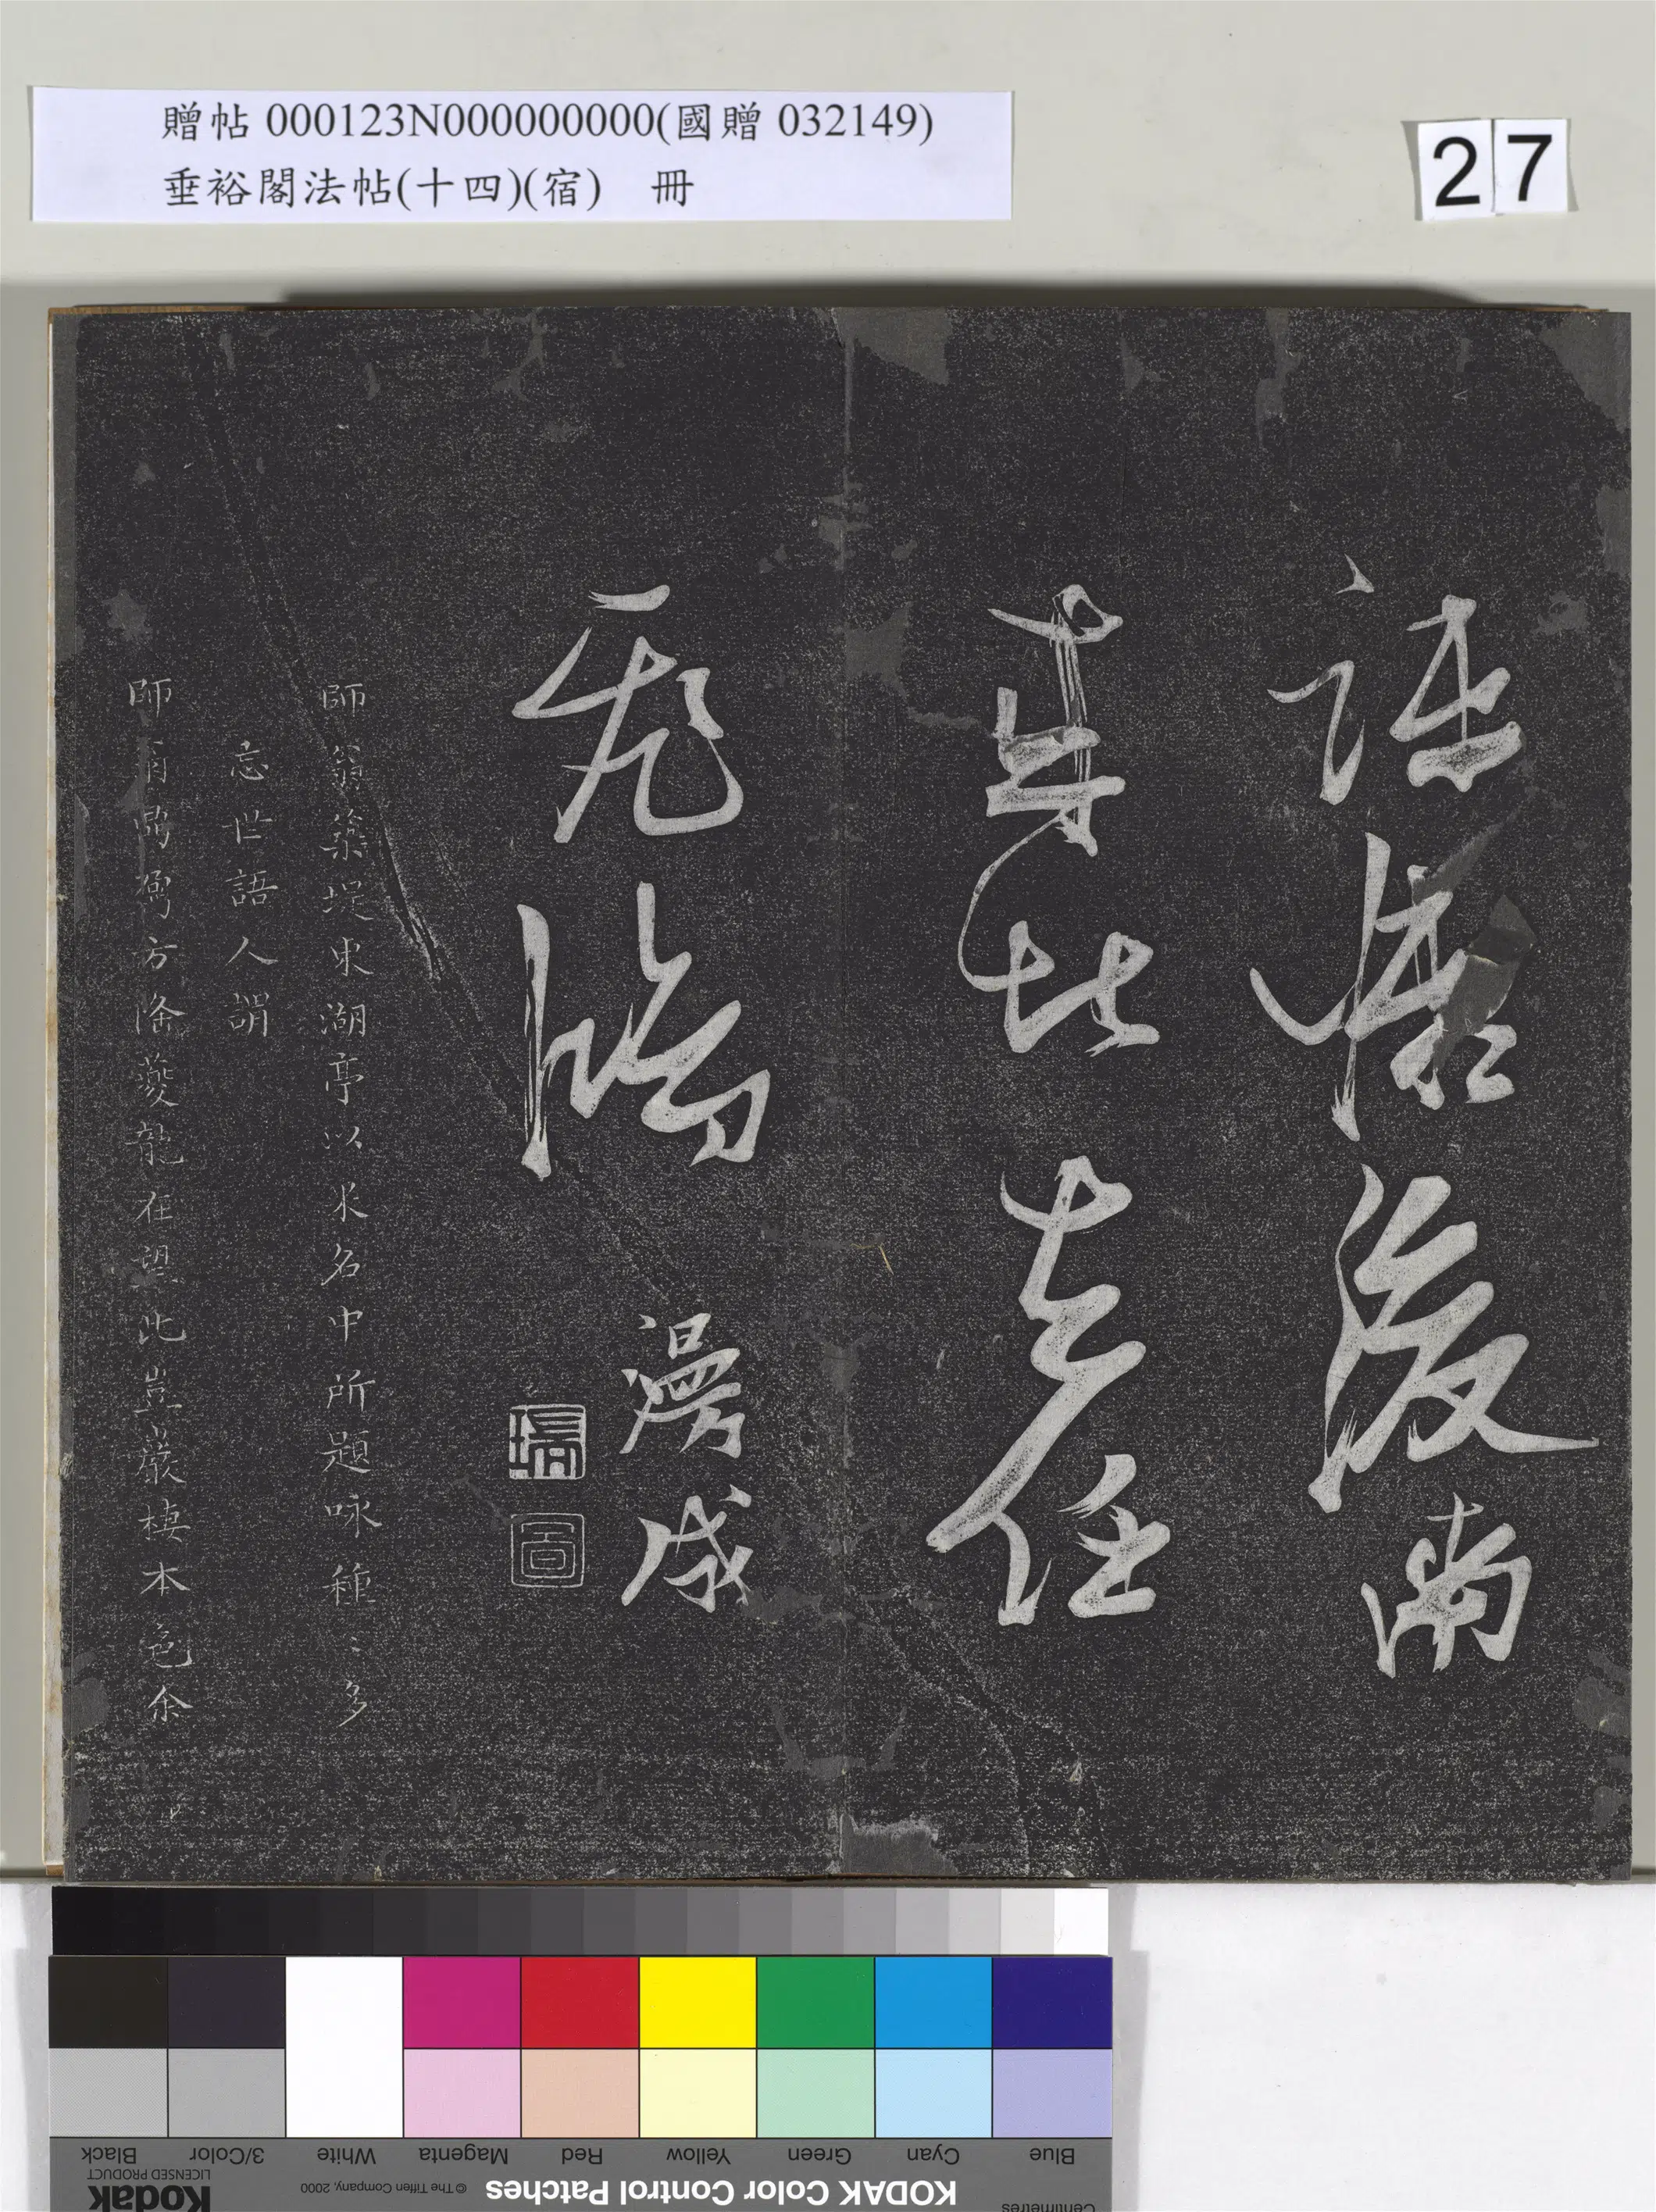 贈帖 000123N000000000(國贈 032149)
垂裕閣法帖(十四)(宿) 冊
27
後南
比老任
漫成
瑞
圖
師翁築堤東湖亭以米名中所題咏種〻多
忘世語人謂
師肩鼎鼐方隆夔龍在望此豈巖棲本色余
Black
3/Color
White
Magenta
Red
Yellow
Green
Cyan
Blue
LICENSED PRODUCT
Kodak
© The Tiffen Company, 2000
KODAK Color Control Patches
Centimetres